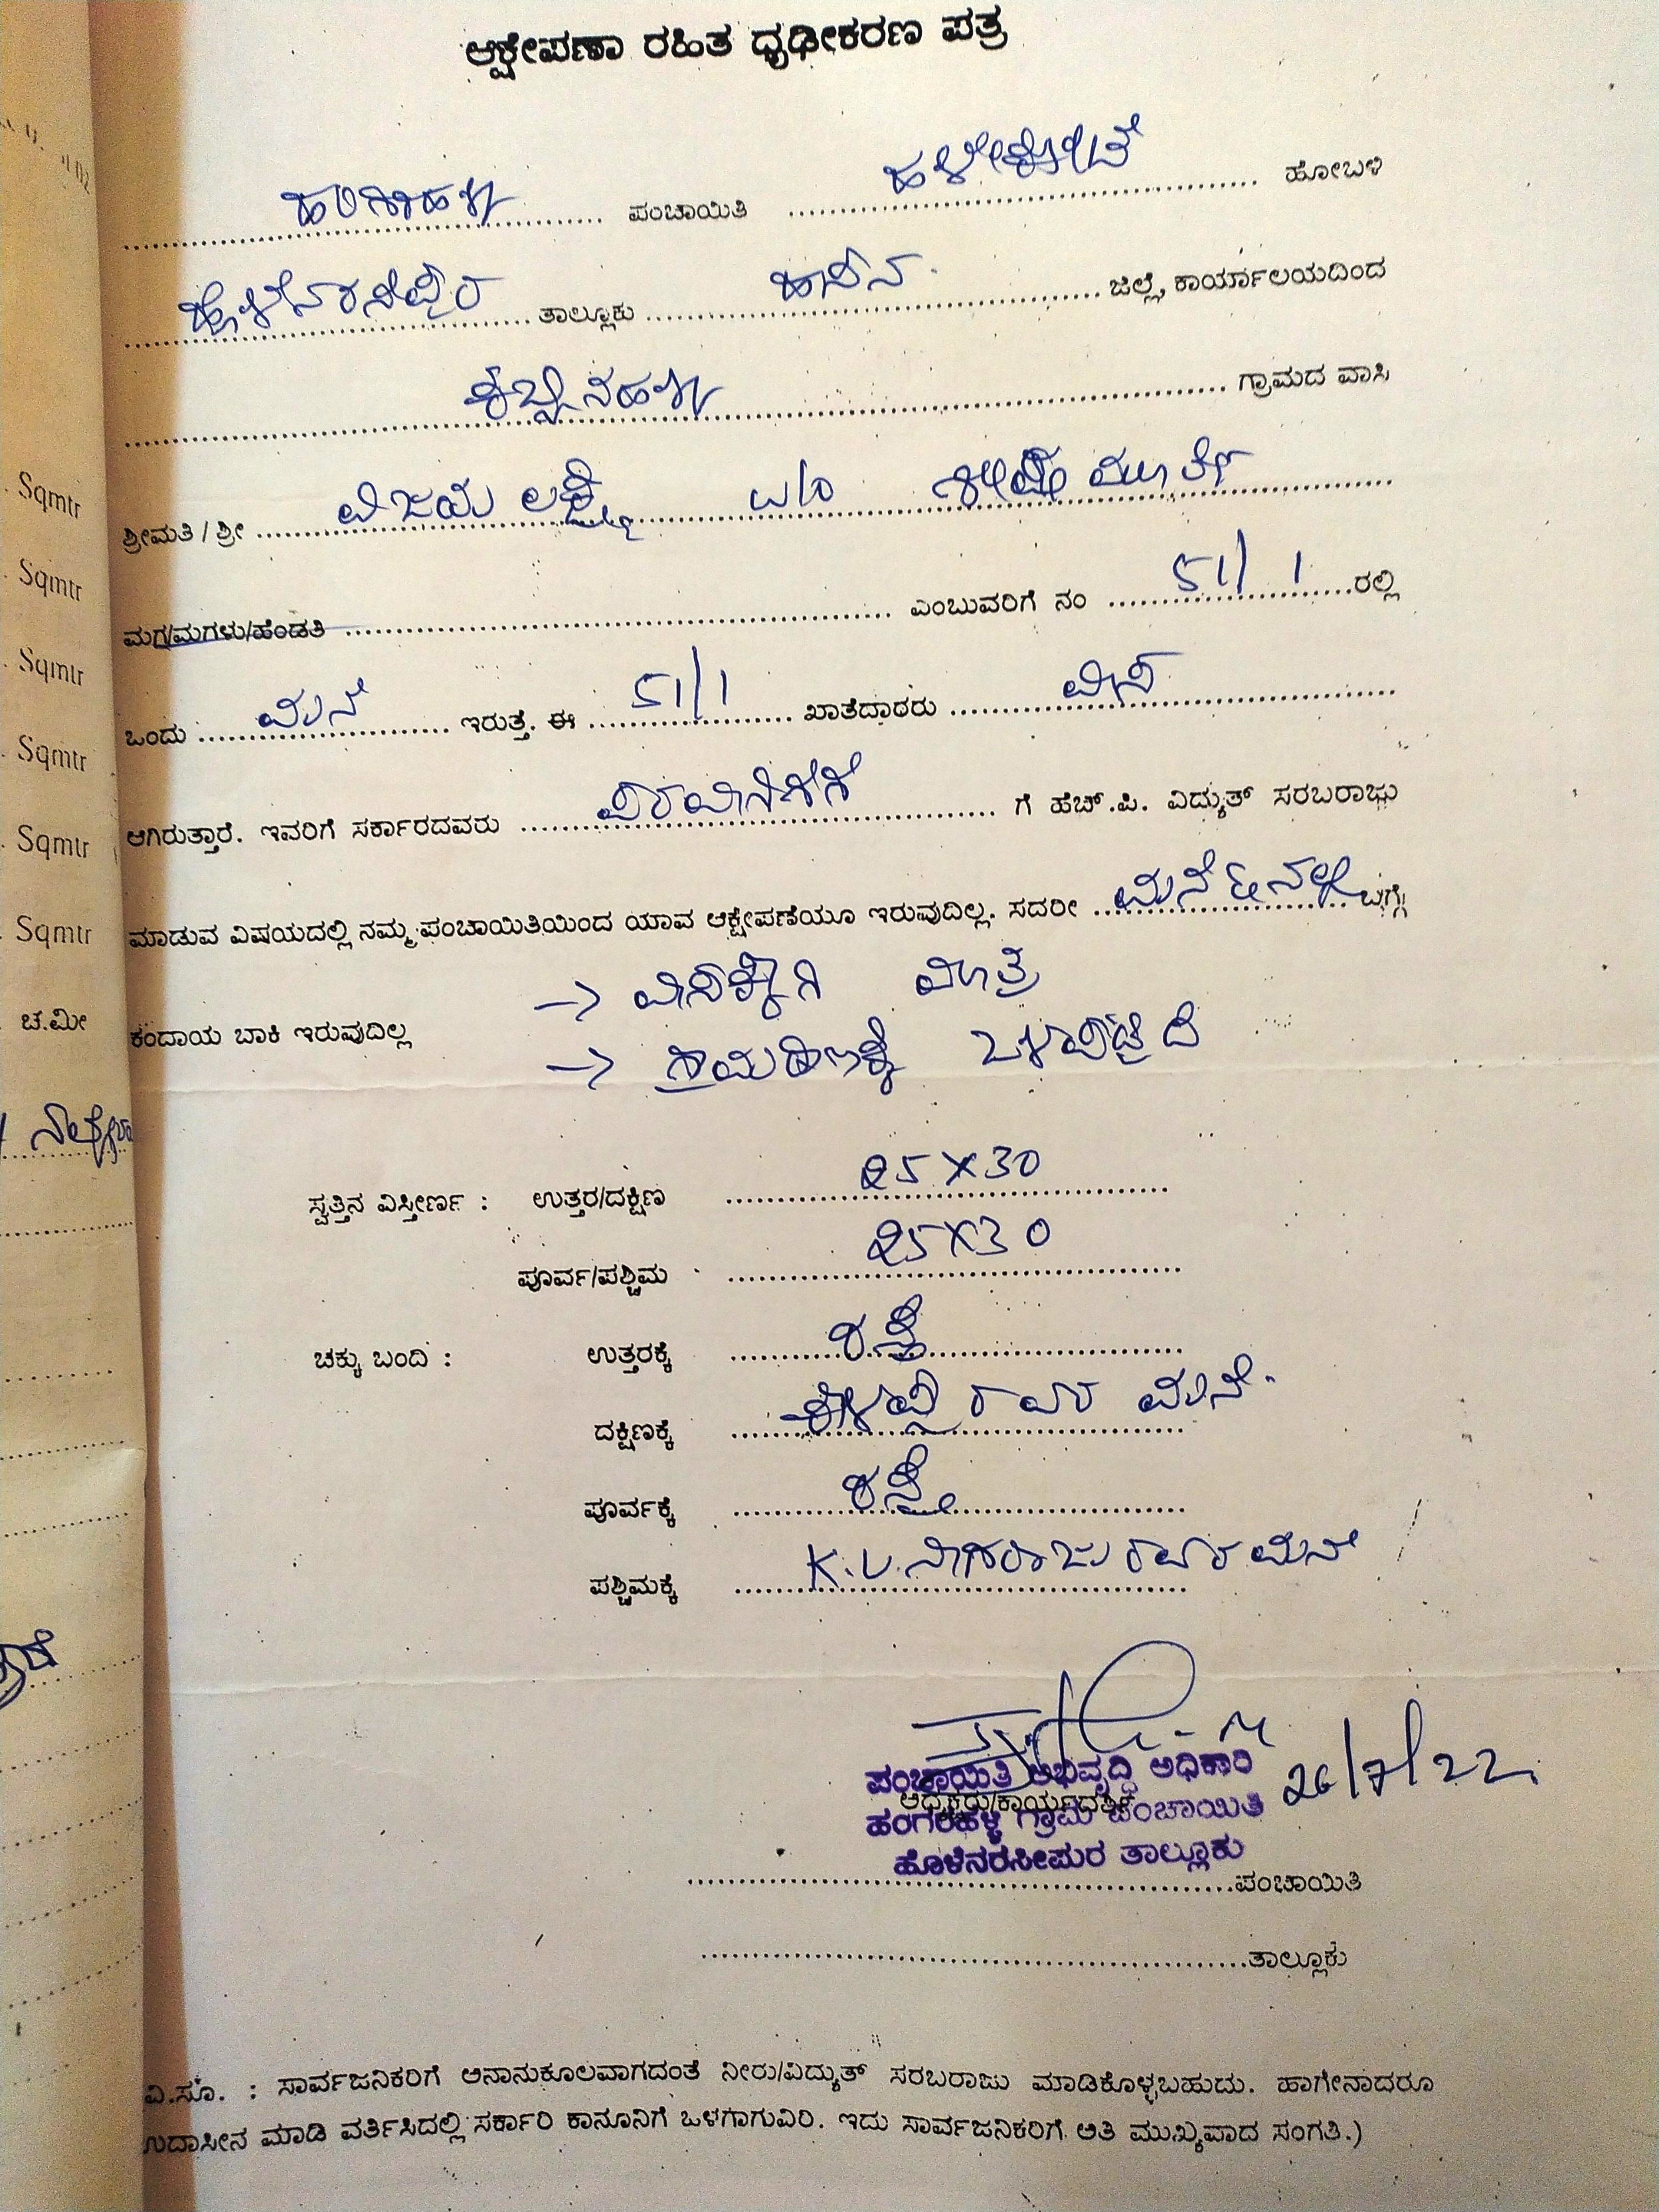 ಆಕ್ಷೇಪಣಾ ರಹಿತ ಧೃಢೀಕರಣ ಪತ್ರ
ಹಂಗರಹಳ್ಳಿ ಪಂಚಾಯಿತಿ ಹಳೇಕೋಟೆ ಹೋಬಳಿ
ಹೊಳೆನರಸೀಪುರ ತಾಲ್ಲೂಕು ಹಾಸನ ಜಿಲ್ಲೆ, ಕಾರ್ಯಾಲಯದಿಂದ
ಗ್ರಾಮದ ವಾಸಿ
ಶ್ರೀಮತಿ / ಶ್ರೀ ವಿಜಯ ಲಕ್ಷ್ಮಿ W/o ಮೂರ್ತಿ
ಮಗ/ಮಗಳು/ಹೆಂಡತಿ ಎಂಬುವರಿಗೆ ನಂ 51/1 ರಲ್ಲಿ
ಒಂದು ಮನೆ ಇರುತ್ತೆ. ಈ 51/1 ಖಾತೆದಾರರು ವಾಸ
ಆಗಿರುತ್ತಾರೆ. ಇವರಿಗೆ ಸರ್ಕಾರದವರು ಗೆ ಹೆಚ್.ಪಿ. ವಿದ್ಯುತ್ ಸರಬರಾಜು
ಮಾಡುವ ವಿಷಯದಲ್ಲಿ ನಮ್ಮ ಪಂಚಾಯಿತಿಯಿಂದ ಯಾವ ಆಕ್ಷೇಪಣೆಯೂ ಇರುವುದಿಲ್ಲ. ಸದರೀ ಮನೆ ಬಗ್ಗೆ
→ ವಾಸಕ್ಕಾಗಿ ಮಾತ್ರ
ಕಂದಾಯ ಬಾಕಿ ಇರುವುದಿಲ್ಲ
→ ಗ್ರಾಮಠಾಣಕ್ಕೆ ಒಳಪಟ್ಟಿದೆ
ಸ್ವತ್ತಿನ ವಿಸ್ತೀರ್ಣ : ಉತ್ತರ/ದಕ್ಷಿಣ 25 X 30
ಪೂರ್ವ/ಪಶ್ಚಿಮ 25 X 30
ಚಕ್ಕು ಬಂದಿ : ಉತ್ತರಕ್ಕೆ ರಸ್ತೆ
ದಕ್ಷಿಣಕ್ಕೆ ರವರ ಮನೆ
ಪೂರ್ವಕ್ಕೆ ರಸ್ತೆ
ಪಶ್ಚಿಮಕ್ಕೆ K.V. ನಾಗರಾಜು ರವರ ಮನೆ
ಪಂಚಾಯಿತಿ ಅಭಿವೃದ್ಧಿ ಅಧಿಕಾರಿ 26/7/22
ಅಧ್ಯಕ್ಷರು/ಕಾರ್ಯದರ್ಶಿ
ಹಂಗರಹಳ್ಳಿ ಗ್ರಾಮ ಪಂಚಾಯಿತಿ
ಹೊಳೆನರಸೀಪುರ ತಾಲ್ಲೂಕು
ಪಂಚಾಯಿತಿ
ತಾಲ್ಲೂಕು
ವಿ.ಸೂ. : ಸಾರ್ವಜನಿಕರಿಗೆ ಅನಾನುಕೂಲವಾಗದಂತೆ ನೀರು/ವಿದ್ಯುತ್ ಸರಬರಾಜು ಮಾಡಿಕೊಳ್ಳಬಹುದು. ಹಾಗೇನಾದರೂ
ಉದಾಸೀನ ಮಾಡಿ ವರ್ತಿಸಿದಲ್ಲಿ ಸರ್ಕಾರಿ ಕಾನೂನಿಗೆ ಒಳಗಾಗುವಿರಿ. ಇದು ಸಾರ್ವಜನಿಕರಿಗೆ ಅತಿ ಮುಖ್ಯವಾದ ಸಂಗತಿ.)
Sqmtr
Sqmtr
Sqmtr
Sqmtr
Sqmtr
Sqmtr
ಚ.ಮೀ